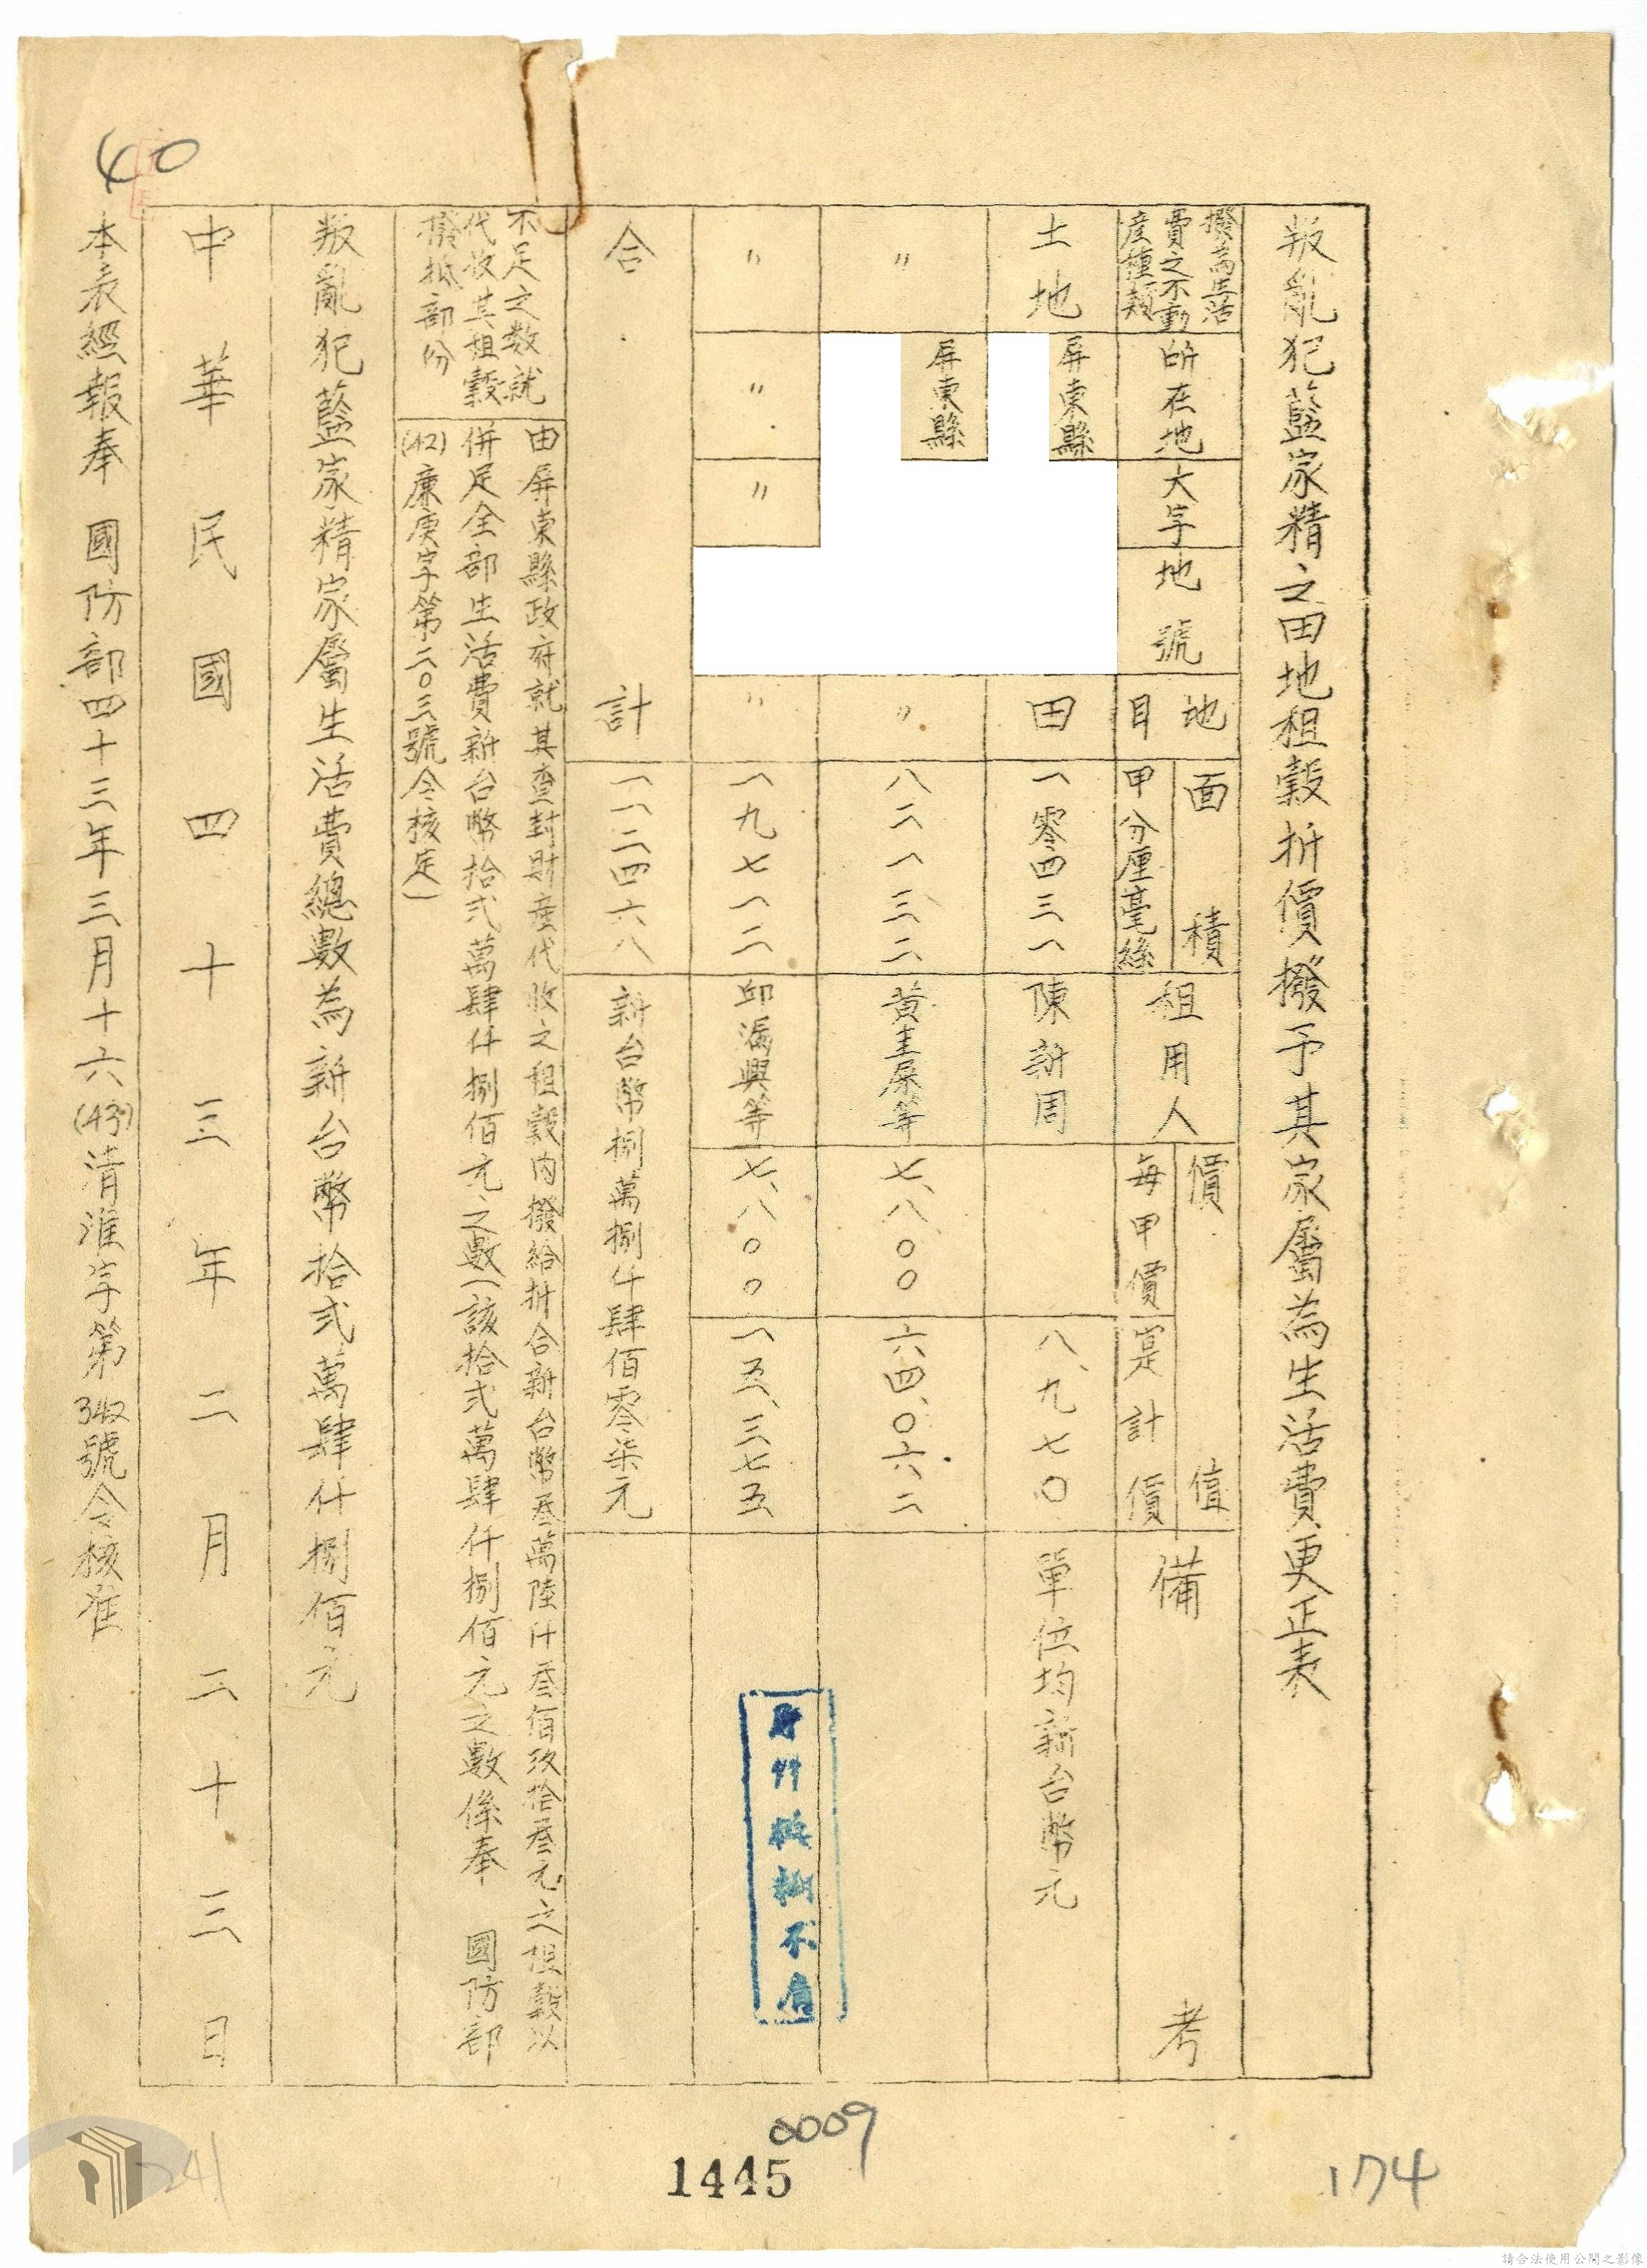 叛亂犯藍家精之田地租穀折價撥予其家屬為生活費更正表
撥為生活費之不動產種類
所在地
大字
地號
地目
面積
甲分厘毫絲
租用人
價值
每甲價
總計價
備考
土地
屏東縣
田
一零四三一
陳新周
八、九七〇
單位均新台幣元
〃
屏東縣
〃
八二一三二
七、八〇〇
六四、〇六二
〃
〃
〃
〃
一九七一二
七、八〇〇
一五、三七五
合計
一一二四六八
新台幣捌萬捌仟肆佰零柒元
不足之数就代收其租穀撥抵部份
由屏東縣政府就其查封財產代收之租穀內撥給折合新台幣叁萬陸仟叁佰玖拾叁元之租穀以
併足全部生活費新台幣拾弍萬肆仟捌佰元之數(該拾弍萬肆仟捌佰元之數係奉 國防部
(42)廉庚字第二〇三號令核定)
叛亂犯藍家精家屬生活費總數為新台幣拾弍萬肆仟捌佰元
中華民國四十三年二月二十三日
本表經報奉 國防部四十三年三月十六(43)清淮字第342號令核准
40
0009
1445
174
241
請合法使用公開之影像